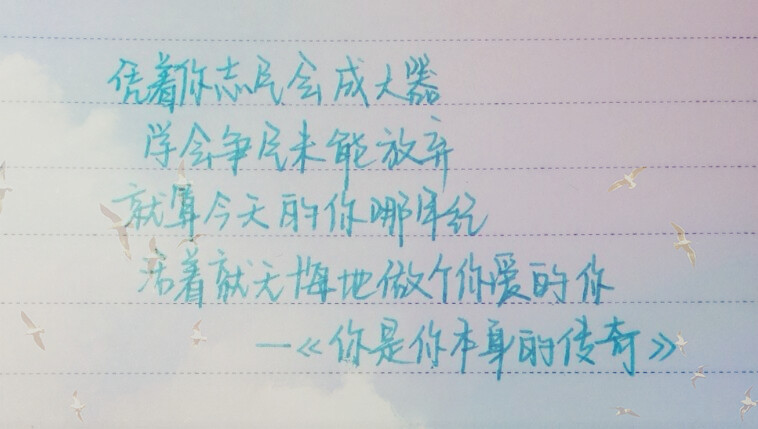 凭着你志气会成大器
学会争气未能放弃
就算今天的你哪年纪
活着就无悔地做个你爱的你
—《你是你本身的传奇》